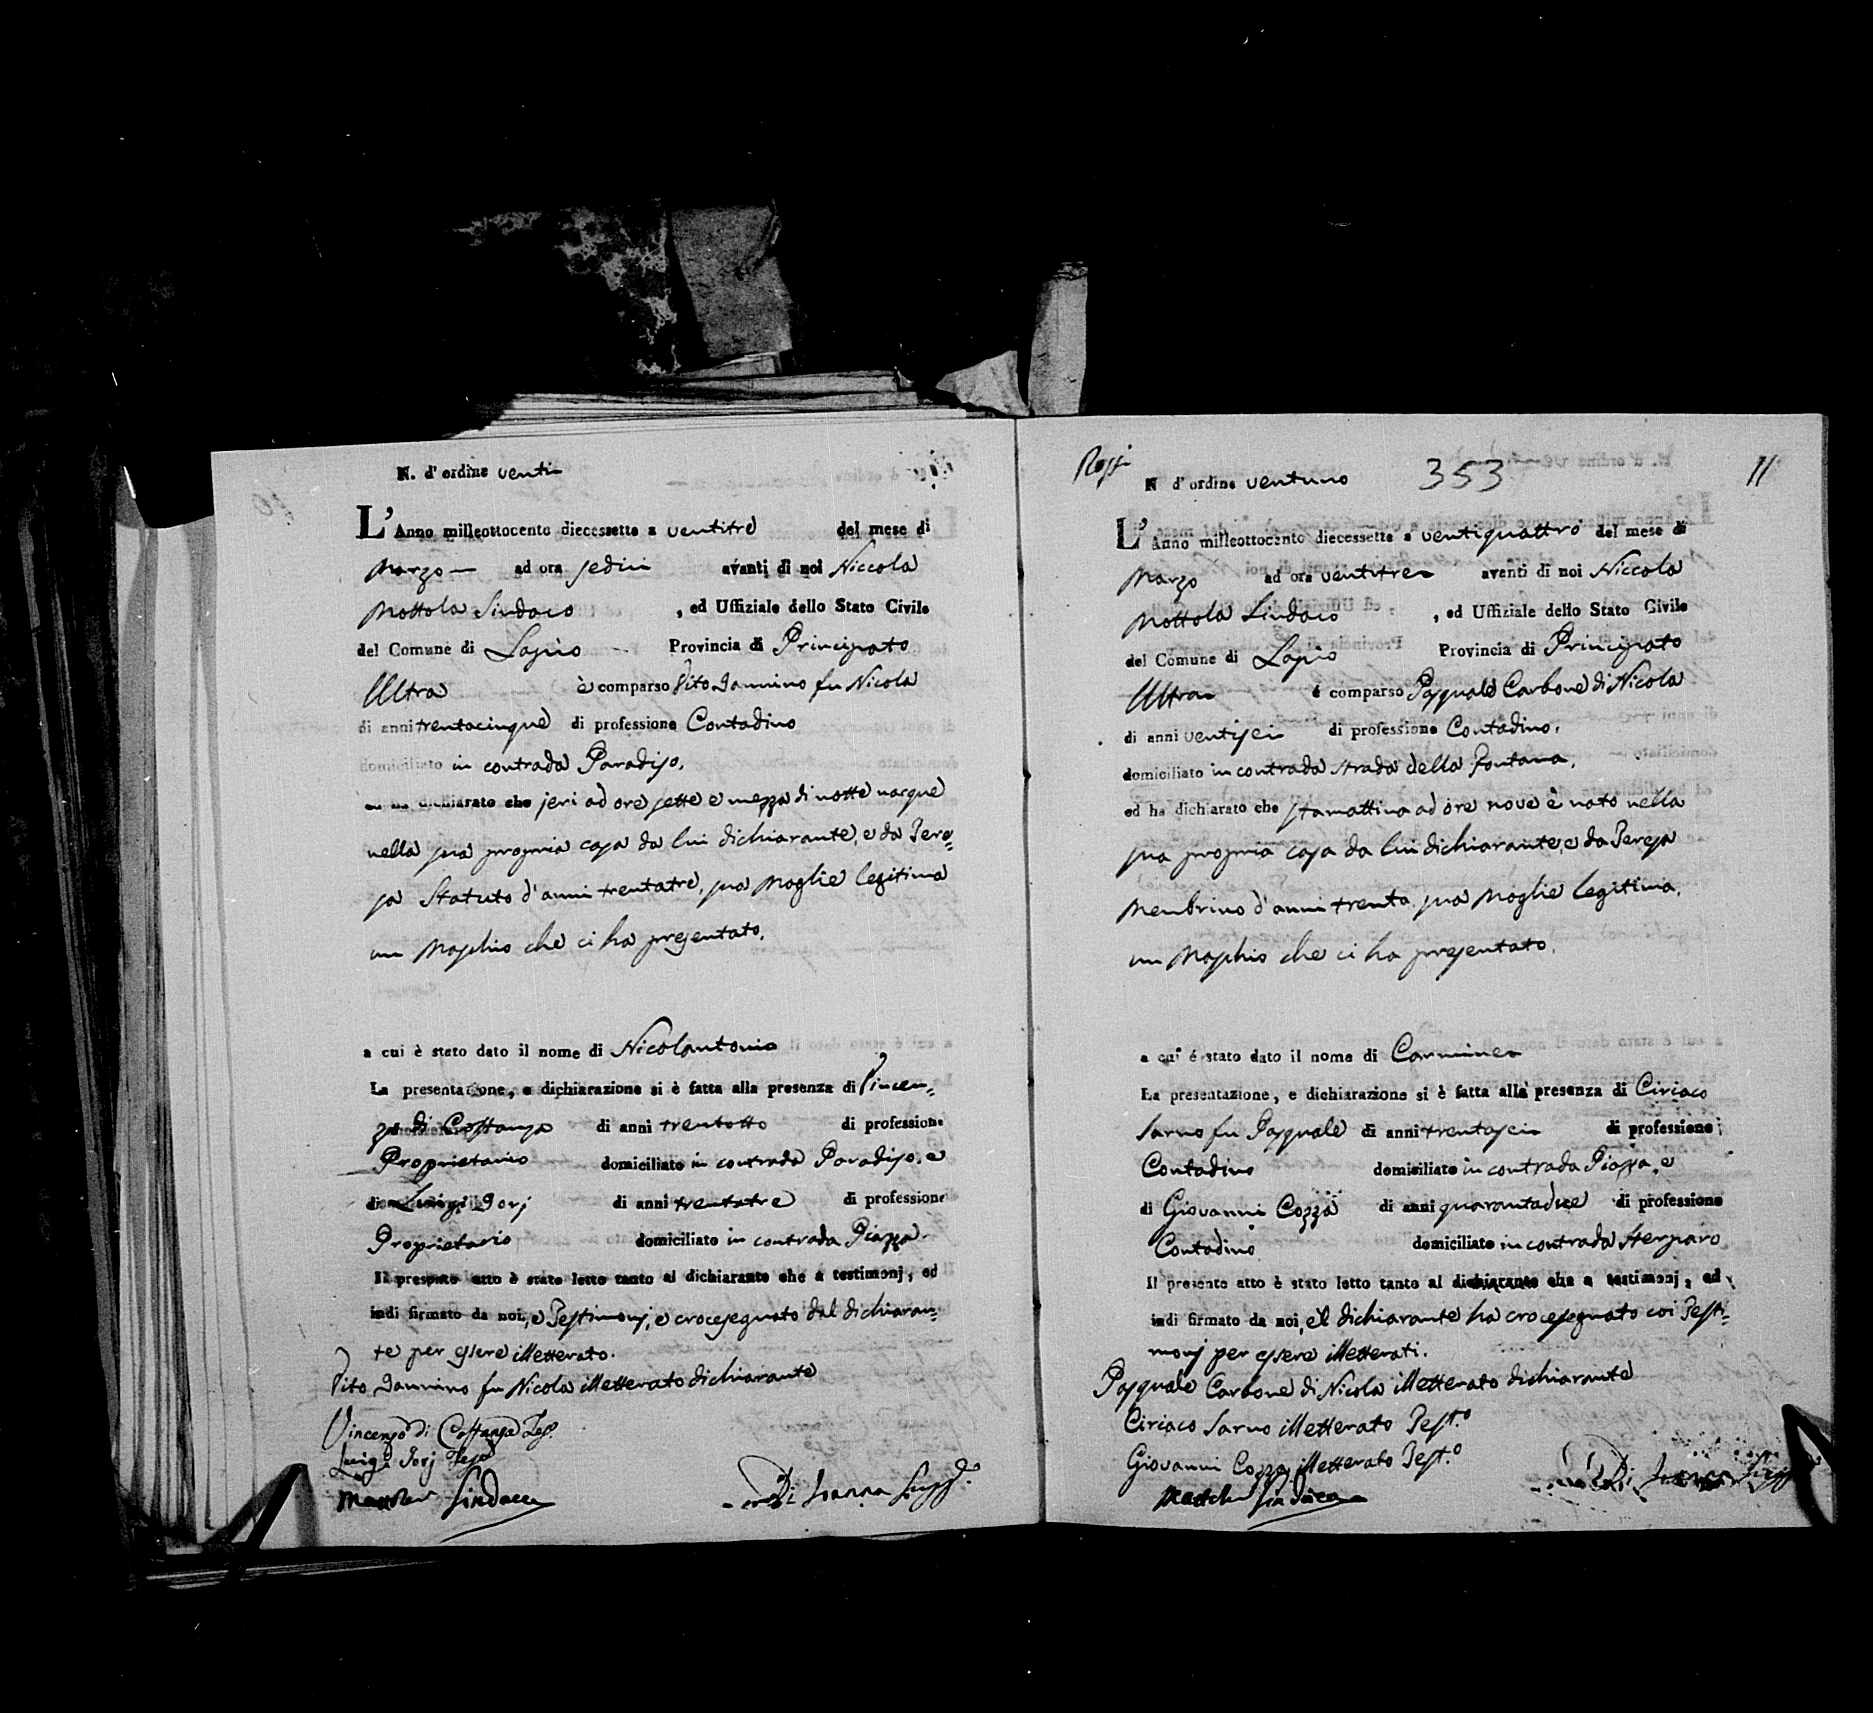 N. d'ordine venti
L'Anno milleottocento diecessette a ventitrè del mese di
Marzo — ad ora sedici avanti di noi Niccola
Mottola Sindaco , ed Uffiziale dello Stato Civile
del Comune di Lapio Provincia di Principato
Ultra è comparso Vito Iannino fu Nicola
di anni trentacinque di professione Contadino
domiciliato in contrada Paradiso,
ed ha dichiarato che jeri ad ore sette e mezza di notte nacque
nella sua propria casa da lui dichiarante, e da Tere=
sa Statuto d'anni trentatre, sua Moglie legitima
un Maschio che ci ha presentato,
a cui è stato dato il nome di Nicolantonio
La presentazione, e dichiarazione si è fatta alla presenza di Vincen=
zo di Costanzo di anni trentotto di professione
Proprietario domiciliato in contrada Paradiso, e
di Luigi Forj di anni trentatre di professione
Proprietario domiciliato in contrada Piazza.
Il presente atto è stato letto tanto al dichiarante che a testimonj, ed
indi firmato da noi, e Testimonj, e crocesegnato dal dichiaran=
te per essere illetterato.
Vito Iannino fu Nicola illetterato dichiarante
Vincenzo di Costanzo Tes.
Luigi Forj Tes
Mottola Sindaco
Di Ioanna
Rossi
N d'ordine ventuno
353
11
L'Anno milleottocento diecessette a ventiquattro del mese di
Marzo ad ora ventitre avanti di noi Niccola
Mottola Sindaco , ed Uffiziale dello Stato Civile
del Comune di Lapio Provincia di Principato
Ultra è comparso Pasquale Carbone di Nicola
di anni ventisei di professione Contadino,
domiciliato in contrada strada della Fontana,
ed ha dichiarato che stamattina ad ore nove è nato nella
sua propria casa da lui dichiarante, e da Teresa
Membrino d'anni trenta, sua Moglie legitima,
un Maschio che ci ha presentato,
a cui è stato dato il nome di Carmine
La presentazione, e dichiarazione si è fatta alla presenza di Ciriaco
Sarno fu Pasquale di anni trentasei di professione
Contadino domiciliato in contrada Piazza, e
di Giovanni Cozza di anni quarantadue di professione
Contadino domiciliato in contrada Sterparo
Il presente atto è stato letto tanto al dichiarante che a testimonj, ed
indi firmato da noi, e'l dichiarante ha crocesegnato coi Testi=
monj per essere illetterati.
Pasquale Carbone di Nicola illetterato dichiarante
Ciriaco Sarno illetterato Test.o
Giovanni Cozza illetterato Test.o
Mottola Sindaco
Di Ioanna